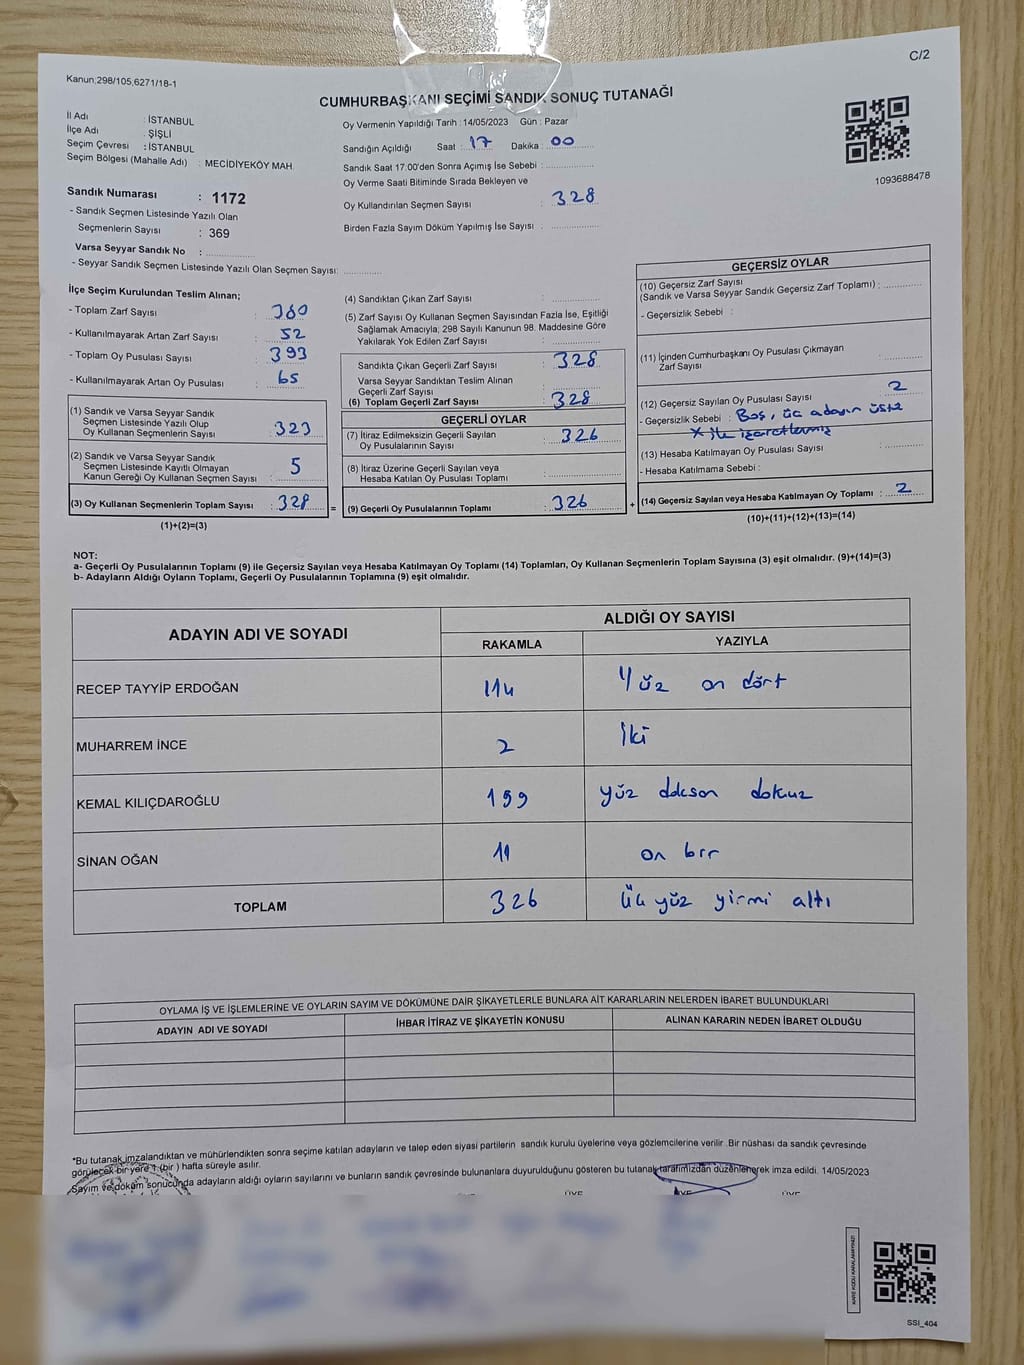 C/2
Kanun;298/105,6271/18-1
CUMHURBAŞKANI SEÇİMİ SANDIK SONUÇ TUTANAĞI
İl Adı : İSTANBUL
İlçe Adı : ŞİŞLİ
Seçim Çevresi : İSTANBUL
Seçim Bölgesi (Mahalle Adı) : MECİDİYEKÖY MAH.
Sandık Numarası : 1172
- Sandık Seçmen Listesinde Yazılı Olan
Seçmenlerin Sayısı : 369
Varsa Seyyar Sandık No :
- Seyyar Sandık Seçmen Listesinde Yazılı Olan Seçmen Sayısı:
Oy Vermenin Yapıldığı Tarih : 14/05/2023 Gün : Pazar
Sandığın Açıldığı Saat : 17 Dakika : 00
Sandık Saat 17.00'den Sonra Açımış İse Sebebi :
Oy Verme Saati Bitiminde Sırada Bekleyen ve
Oy Kullandırılan Seçmen Sayısı : 328
Birden Fazla Sayım Döküm Yapılmış İse Sayısı :
1093688478
İlçe Seçim Kurulundan Teslim Alınan;
- Toplam Zarf Sayısı : 380
- Kullanılmayarak Artan Zarf Sayısı : 52
- Toplam Oy Pusulası Sayısı : 393
- Kullanılmayarak Artan Oy Pusulası : 65
(1) Sandık ve Varsa Seyyar Sandık
Seçmen Listesinde Yazılı Olup
Oy Kullanan Seçmenlerin Sayısı : 323
(2) Sandık ve Varsa Seyyar Sandık
Seçmen Listesinde Kayıtlı Olmayan
Kanun Gereği Oy Kullanan Seçmen Sayısı : 5
(3) Oy Kullanan Seçmenlerin Toplam Sayısı : 328
(1)+(2)=(3)
=
(4) Sandıktan Çıkan Zarf Sayısı :
(5) Zarf Sayısı Oy Kullanan Seçmen Sayısından Fazla İse, Eşitliği
Sağlamak Amacıyla; 298 Sayılı Kanunun 98. Maddesine Göre
Yakılarak Yok Edilen Zarf Sayısı :
Sandıkta Çıkan Geçerli Zarf Sayısı : 328
Varsa Seyyar Sandıktan Teslim Alınan
Geçerli Zarf Sayısı :
(6) Toplam Geçerli Zarf Sayısı : 328
GEÇERLİ OYLAR
(7) İtiraz Edilmeksizin Geçerli Sayılan
Oy Pusulalarının Sayısı : 326
(8) İtiraz Üzerine Geçerli Sayılan veya
Hesaba Katılan Oy Pusulası Toplamı :
(9) Geçerli Oy Pusulalarının Toplamı : 326
+
GEÇERSİZ OYLAR
(10) Geçersiz Zarf Sayısı
(Sandık ve Varsa Seyyar Sandık Geçersiz Zarf Toplamı) :
- Geçersizlik Sebebi :
(11) İçinden Cumhurbaşkanı Oy Pusulası Çıkmayan
Zarf Sayısı :
(12) Geçersiz Sayılan Oy Pusulası Sayısı : 2
- Geçersizlik Sebebi : Boş, üç adayın üste
X ile işaretlenmiş
(13) Hesaba Katılmayan Oy Pusulası Sayısı :
- Hesaba Katılmama Sebebi :
(14) Geçersiz Sayılan veya Hesaba Katılmayan Oy Toplamı : 2
(10)+(11)+(12)+(13)=(14)
NOT:
a- Geçerli Oy Pusulalarının Toplamı (9) ile Geçersiz Sayılan veya Hesaba Katılmayan Oy Toplamı (14) Toplamları, Oy Kullanan Seçmenlerin Toplam Sayısına (3) eşit olmalıdır. (9)+(14)=(3)
b- Adayların Aldığı Oyların Toplamı, Geçerli Oy Pusulalarının Toplamına (9) eşit olmalıdır.
ADAYIN ADI VE SOYADI ALDIĞI OY SAYISI
RAKAMLA YAZIYLA
RECEP TAYYİP ERDOĞAN 114 Yüz on dört
MUHARREM İNCE 2 İki
KEMAL KILIÇDAROĞLU 199 yüz doksan dokuz
SİNAN OĞAN 11 on bir
TOPLAM 326 Üç yüz yirmi altı
OYLAMA İŞ VE İŞLEMLERİNE VE OYLARIN SAYIM VE DÖKÜMÜNE DAİR ŞİKAYETLERLE BUNLARA AİT KARARLARIN NELERDEN İBARET BULUNDUKLARI
ADAYIN ADI VE SOYADI İHBAR İTİRAZ VE ŞİKAYETİN KONUSU ALINAN KARARIN NEDEN İBARET OLDUĞU
*Bu tutanak imzalandıktan ve mühürlendikten sonra seçime katılan adayların ve talep eden siyasi partilerin sandık kurulu üyelerine veya gözlemcilerine verilir .Bir nüshası da sandık çevresinde
görülecek bir yere 1 (bir ) hafta süreyle asılır.
Sayım ve döküm sonucunda adayların aldığı oyların sayılarını ve bunların sandık çevresinde bulunanlara duyurulduğunu gösteren bu tutanak tarafımızdan düzenlenerek imza edildi. 14/05/2023
ÜYE ÜYE ÜYE
KARE KODU KARALAMAYINIZ!
SSI_404